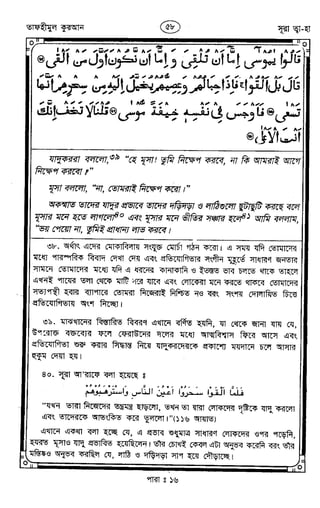 তাফহীমুল কুরআন
৫৮
সূরা ত্বা-হা
قَالُوا يٰمُوسٰى اِمَّا اَنْ تُلْقِيَ وَاِمَّا اَنْ نَّكُوْنَ اَوَّلَ مَنْ اَلْقٰى
قَالَ بَلْ اَلْقُوْا فَاِذَا حِبَالُهُمْ وَعِصِيُّهُمْ يُخَيَّلُ اِلَيْهِ مِنْ سِحْرِهِمْ اَنَّهَا
تَسْعٰى فَاَوْجَسَ فِيْ نَفْسِهٖ خِيْفَةً مُّوْسٰى قُلْنَا لَا تَخَفْ اِنَّكَ
اَنْتَ الْاَعْلٰى
যাদুকররা বললো,৩৯ “হে মূসা! তুমি নিক্ষেপ করবে, না কি আমরাই আগে
নিক্ষেপ করবো?”
মূসা বললো, “না, তোমরাই নিক্ষেপ করো।”
অকস্মাত তাদের যাদুর প্রভাবে তাদের দড়িদড়া ও লাঠিগুলো ছুটাছুটি করছে বলে
মূসার মনে হতে লাগলো৪০ এবং মূসার মনে ভীতির সঞ্চার হলো৪১ আমি বললাম,
“ভয় পেয়ো না, তুমিই প্রাধান্য লাভ করবে।
৩৮. অর্থাৎ এদের মোকাবিলায় সংযুক্ত মোর্চা গঠন করো। এ সময় যদি তোমাদের
মধ্যে পারস্পরিক বিবাদ দেখা দেয় এবং প্রতিযোগিতার সংগীন মুহূর্তে সাধারণ জনতার
সামনে তোমাদের মধ্যে যদি এ ধরনের কানাকানি ও ইতস্তত ভাব চলতে থাকে তাহলে
এখনই পায়ের তলা থেকে মাটি সরে যাবে এবং লোকেরা মনে করতে থাকবে তোমাদের
সত্যপন্থী হবার ব্যাপারে তোমরা নিজেরাই নিশ্চিত নও বরং সংশয় দোলায়িত চিত্তে
প্রতিযোগিতায় অংশ নিচ্ছো।
৩৯. মাঝখানের বিস্তারিত বিবরণ এখানে বর্ণিত হয়নি, যা থেকে জানা যায় যে,
উপরোক্ত বক্তব্যের ফলে ফেরাউনের দলের মধ্যে আত্মবিশ্বাস ফিরে আসে এবং
প্রতিযোগিতা শুরু করার সিদ্ধান্ত নিয়ে যাদুকরদেরকে প্রকাশ্যে ময়দানে চলে আসার
হুকুম দেয়া হয়।
৪০. সূরা আ'রাফে বলা হয়েছে ঃ
فَلَمَّا اَلْقَوْا سَحَرُوْا اَعْيُنَ النَّاسِ وَاسْتَرْهَبُوْهُمْ
“যখন তারা নিজেদের তন্ত্রমন্ত্র ছাড়লো, তখন তা দ্বারা লোকদের দৃষ্টিকে যাদু করলো
এবং তাদেরকে আতংকিত করে তুললো।” (১১৬ আয়াত)
এখানে একথা বলা হচ্ছে যে, এ প্রভাব শুধুমাত্র সাধারণ লোকদের ওপর পড়েনি,
হযরত মূসাও যাদু প্রভাবিত হয়েছিলেন। তাঁর চোখই কেবল এটা অনুভব করেনি বরং তাঁর
মস্তিষ্কও অনুভব করছিল যে, লাঠি ও দড়িদড়া সাপ হয়ে দৌড়াচ্ছে।
পারা ঃ ১৬